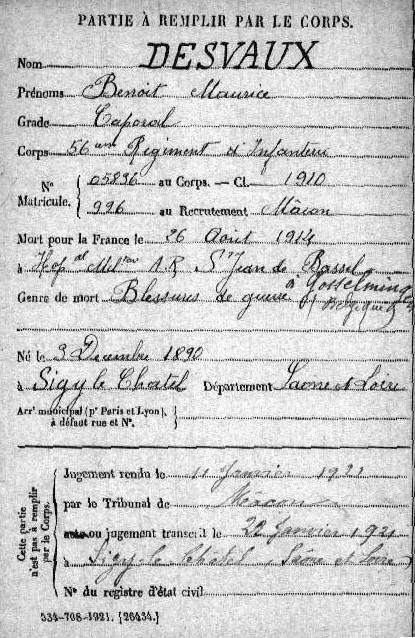 PARTIE À REMPLIR PAR LE CORPS.
Nom DESVAUX
Prénoms Benoit Maurice
Grade Caporal
Corps 56ème Régiment d'Infanterie
N° Matricule. { 05836 au Corps. — Cl. 1910
996 au Recrutement Mâcon
Mort pour la France le 26 Août 1914
à Hop al Mil re A.R. St Jean de Bassel
à Gosselming
Genre de mort Blessures de guerre
Né le 3 Décembre 1890
à Sigy le Chatel Département Saone et Loire
Arr t municipal (p r Paris et Lyon), à défaut rue et N°. }
Cette partie n'est pas à remplir par le Corps. {
Jugement rendu le 11 Janvier 1921
par le Tribunal de Mâcon
acte ou jugement transcrit le 22 Janvier 1921
à Sigy le Chatel Saône et Loire
N° du registre d'état civil
534-708-1921. [26434.]